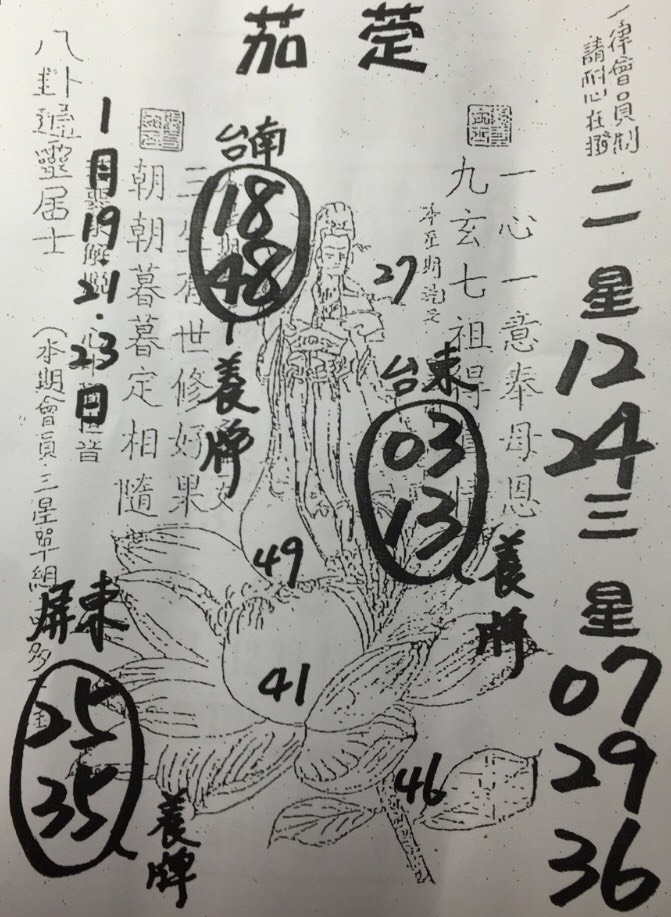 茄萣
一律會員制
請耐心在撥
二星
12
24
三星
07
29
36
一心一意奉母恩
九玄七祖得
27
台東
03
13
養牌
台南
18
48
養牌
三
世修好果
朝朝暮暮定相隨
1月19.21.23日
八卦
居士
(本期會員.三星單組
49
41
46
屏東
25
35
養牌